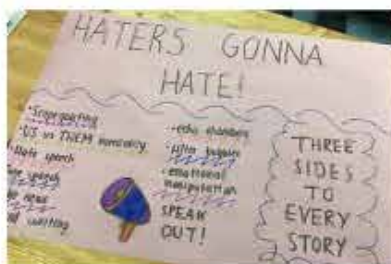 HATERS GONNA
HATE!
•Scapegoating
•US vs THEM mentality
Hate speech
speech
•echo chambers
•filter bubbles
•emotional
manipulation
SPEAK
OUT!
THREE
SIDES
TO
EVERY
STORY